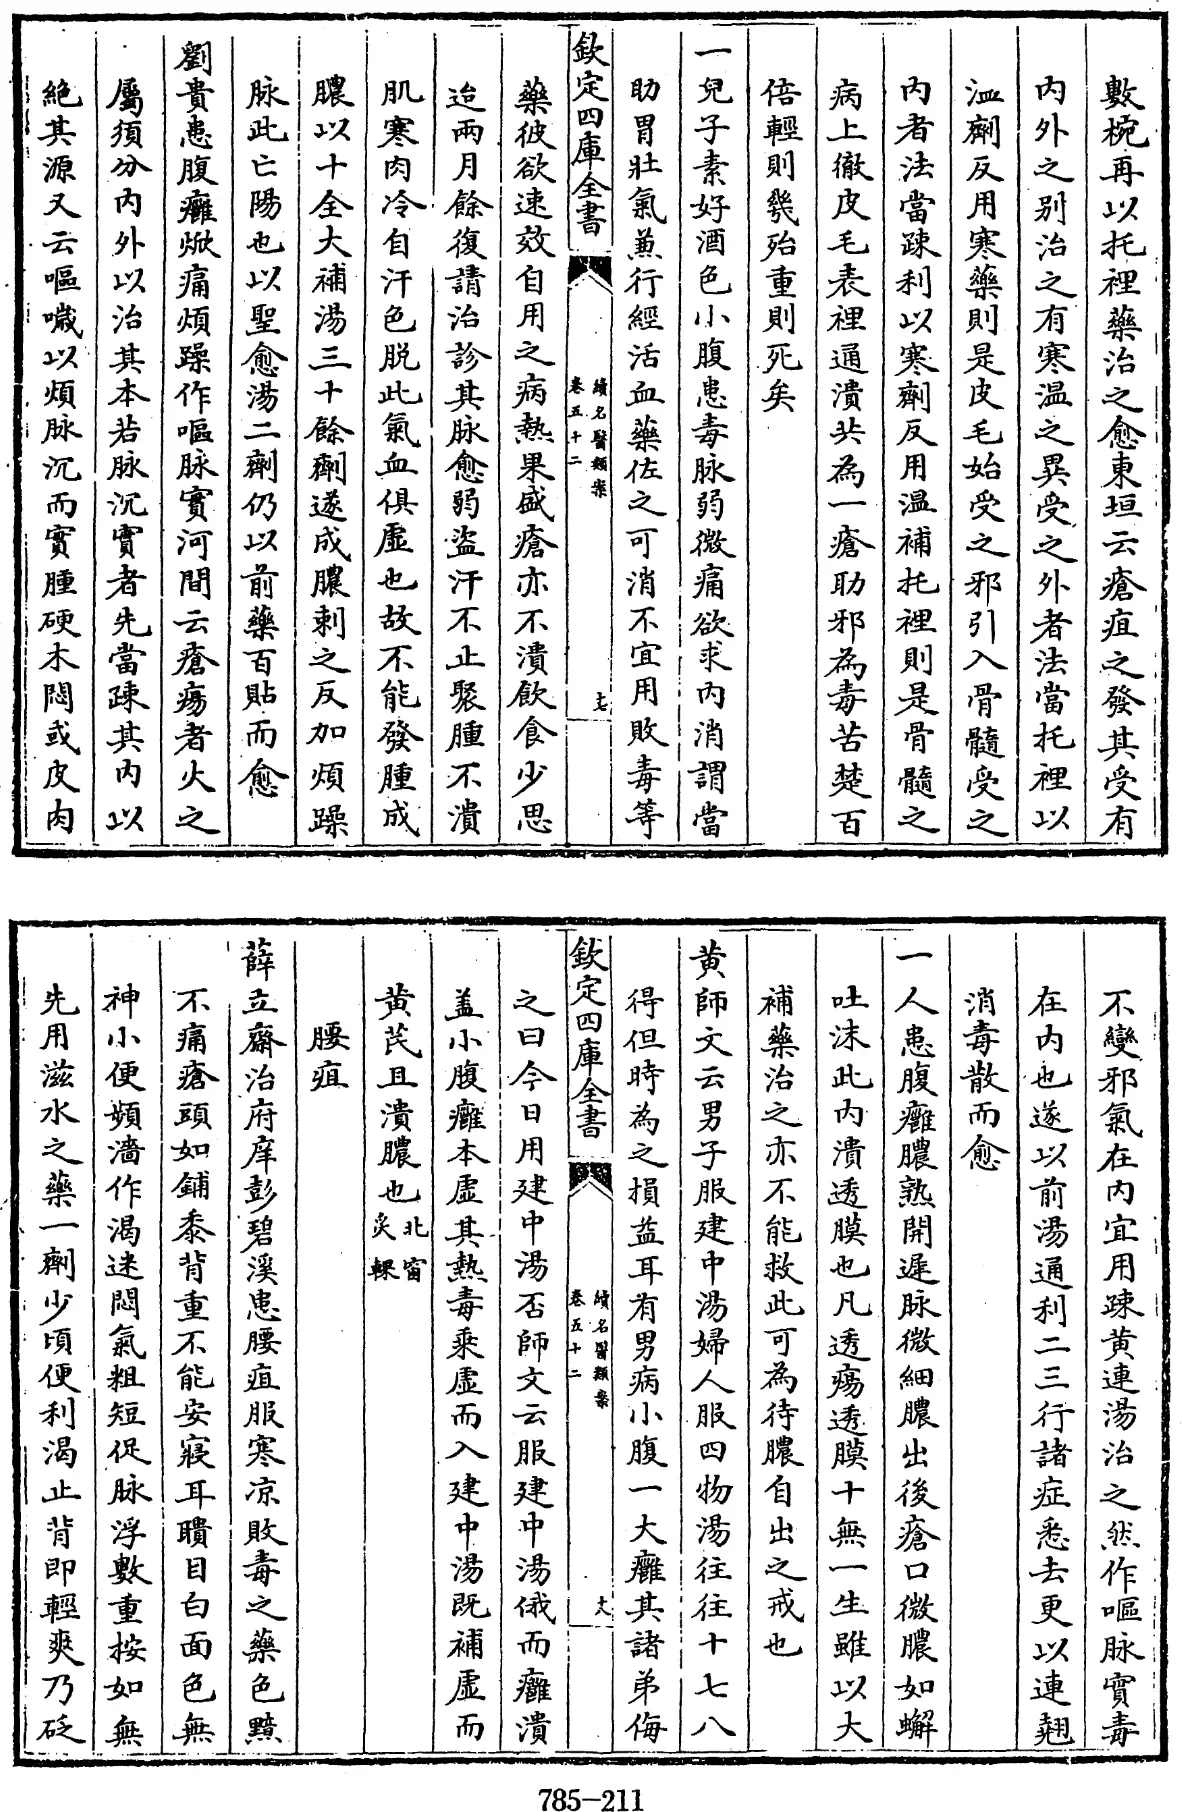 數椀再以托裡藥治之愈東垣云瘡疽之發其受有
内外之别治之有寒温之異受之外者法當托裡以
温劑反用寒藥則是皮毛始受之邪引入骨髓受之
内者法當疎利以寒劑反用温補托裡則是骨髓之
病上徹皮毛表裡通潰共為一瘡助邪為毒苦楚百
倍輕則幾殆重則死矣
一兒子素好酒色小腹患毒脉弱微痛欲求内消謂當
助胃壯氣兼行經活血藥佐之可消不宜用敗毒等
欽定四庫全書
續名醫類案
卷五十二
十七
藥彼欲速效自用之病熱果盛瘡亦不潰飲食少思
迨兩月餘復請治診其脉愈弱盗汗不止聚腫不潰
肌寒肉冷自汗色脱此氣血俱虚也故不能發腫成
膿以十全大補湯三十餘劑遂成膿刺之反加煩躁
脉此亡陽也以聖愈湯二劑仍以前藥百貼而愈
劉貴患腹癰焮痛煩躁作嘔脉實河間云瘡瘍者火之
屬須分内外以治其本若脉沉實者先當疎其内以
絶其源又云嘔噦以煩脉沉而實腫硬木悶或皮肉
不變邪氣在内宜用疎黄連湯治之然作嘔脉實毒
在内也遂以前湯通利二三行諸症悉去更以連翹
消毒散而愈
一人患腹癰膿熟開遲脉微細膿出後瘡口微膿如蠏
吐沫此内潰透膜也凡透瘍透膜十無一生雖以大
補藥治之亦不能救此可為待膿自出之戒也
黄師文云男子服建中湯婦人服四物湯往往十七八
得但時為之損益耳有男病小腹一大癰其諸弟侮
欽定四庫全書
續名醫類案
卷五十二
十八
之曰今日用建中湯否師文云服建中湯俄而癰潰
盖小腹癰本虚其熱毒乘虚而入建中湯既補虚而
黄芪且潰膿也北窗炙輠
腰疽
薛立齋治府庠彭碧溪患腰疽服寒凉敗毒之藥色黯
不痛瘡頭如鋪黍背重不能安寢耳聵目白面色無
神小便頻濇作渴迷悶氣粗短促脉浮數重按如無
先用滋水之藥一劑少頃便利渴止背即輕爽乃砭
785-211